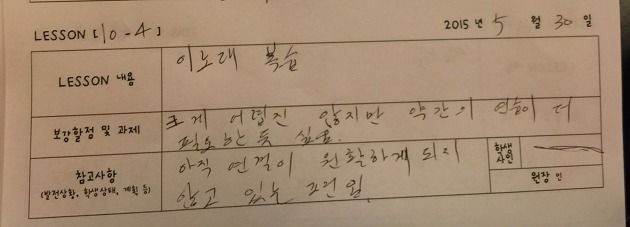 LESSON [10-4] 2015 년 5 월 30 일
LESSON 내용
이노래 복습
보강할점 및 과제
크게 어렵진 않지만 약간의 연습이 더
필요한 듯 싶음
참고사항
(발전상황, 학생상태, 계획 등)
아직 연결이 원활하게 되지
않고 있는
학생
사인
원장 인